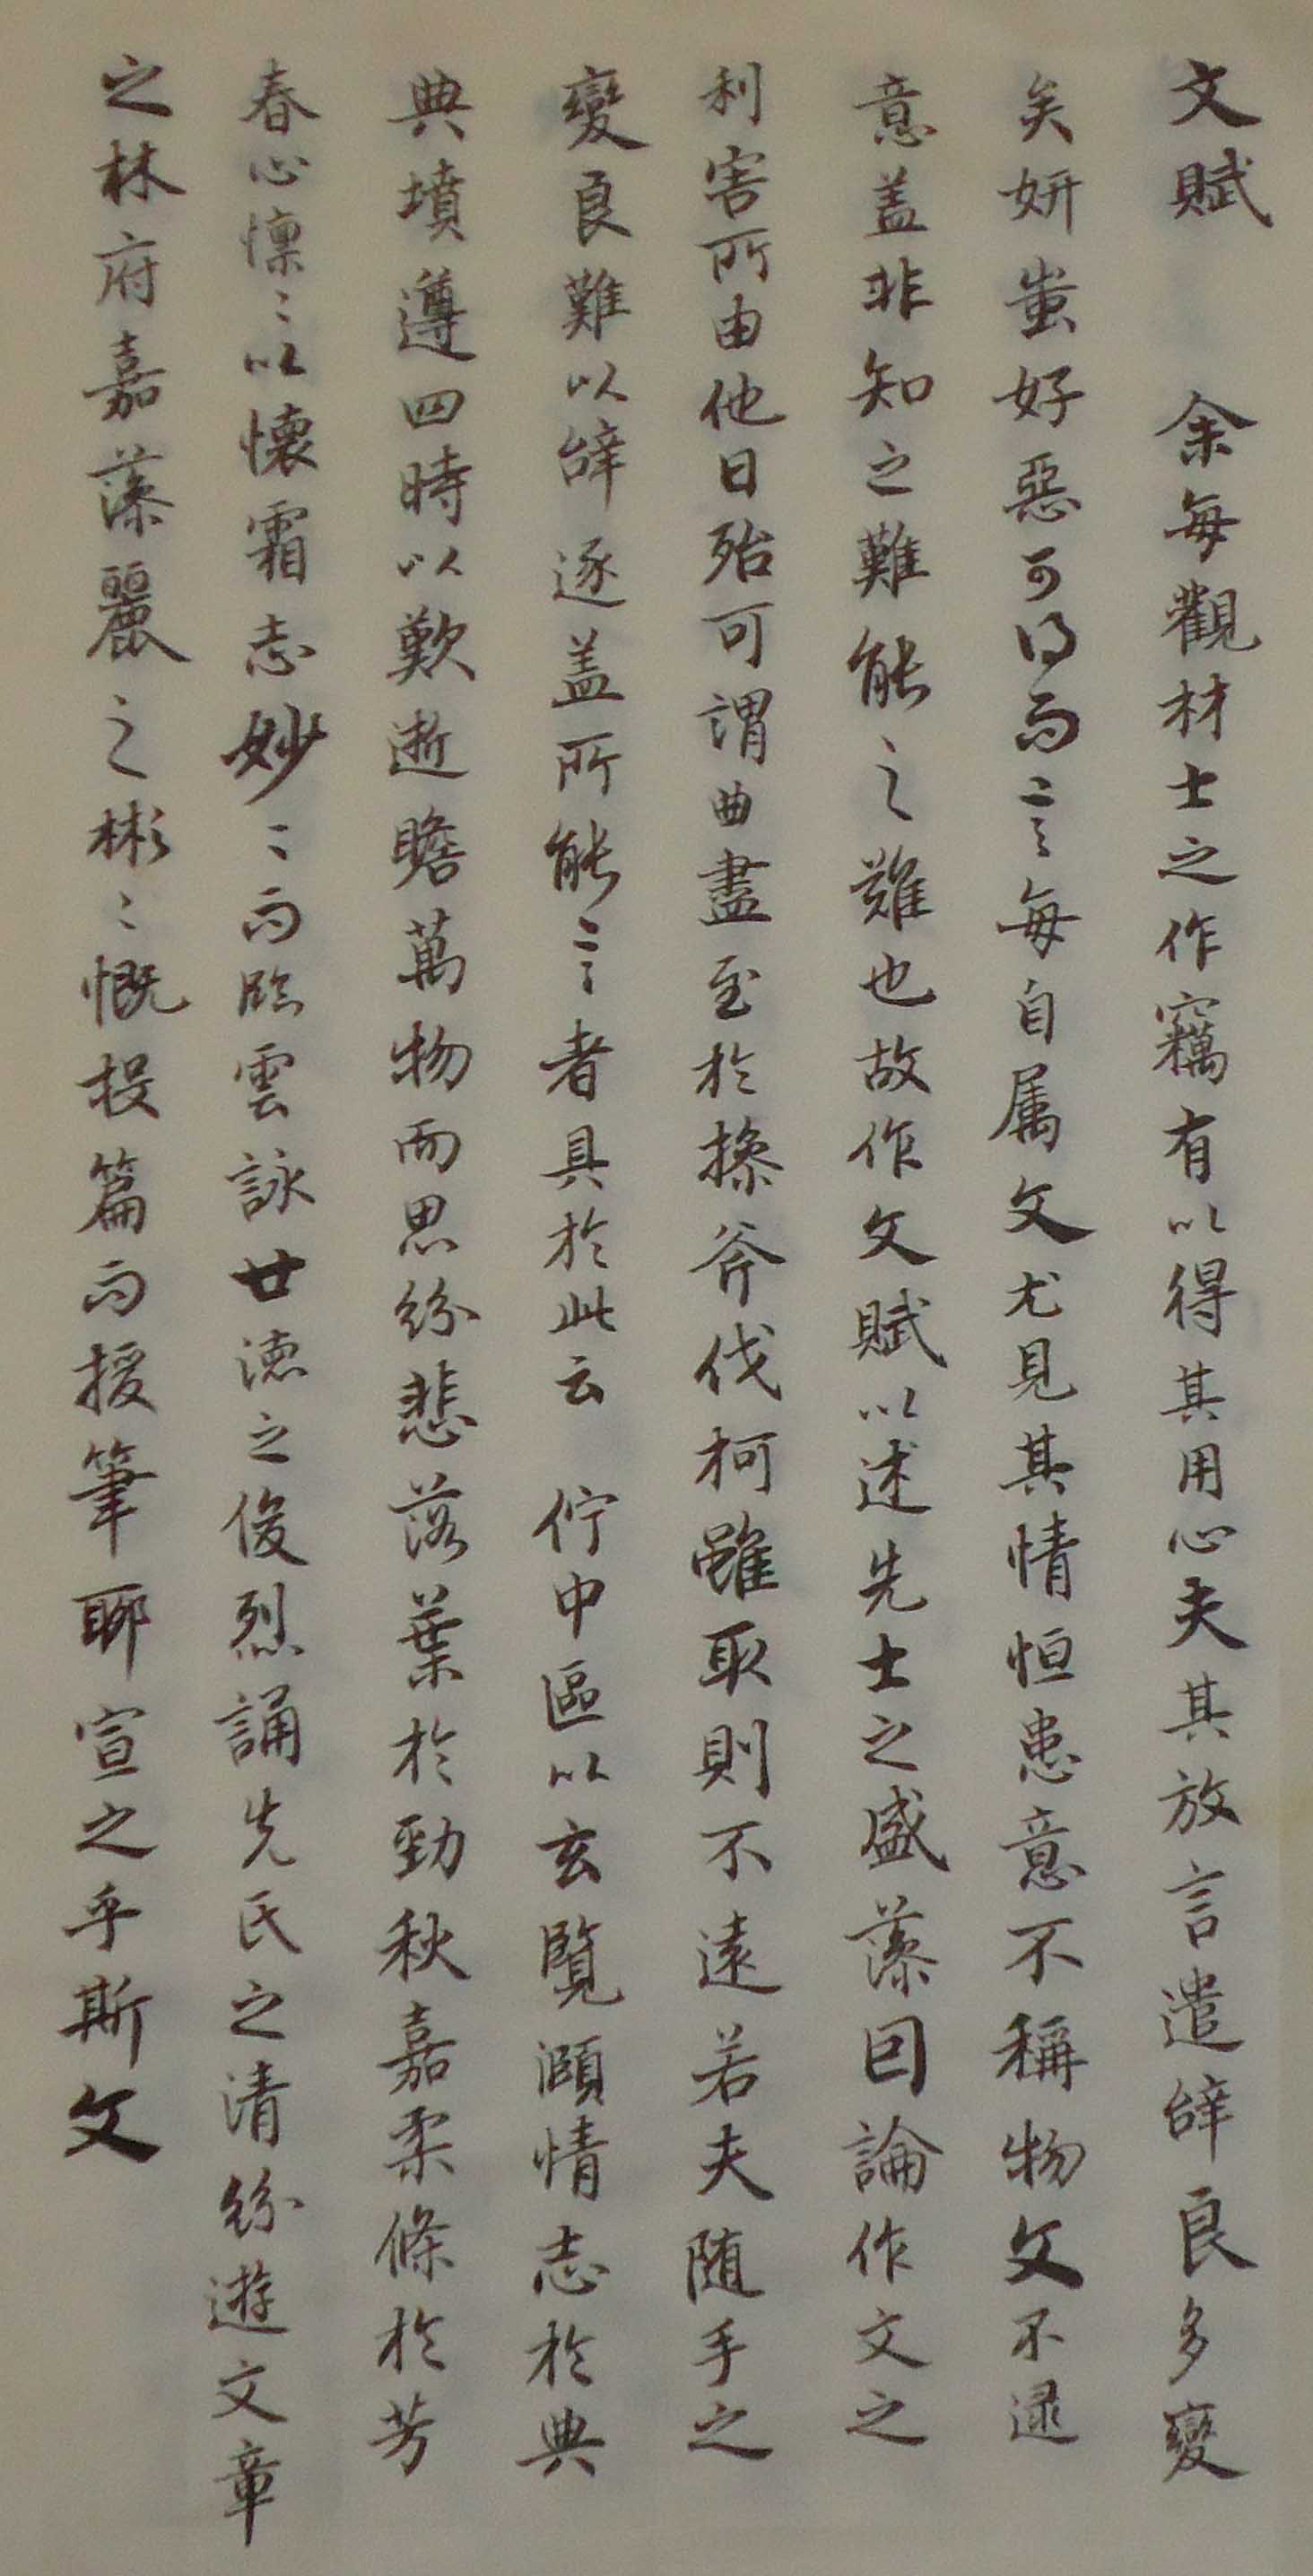 文賦 余每觀材士之作竊有以得其用心夫其放言遣辞良多變
矣妍蚩好惡可得而言每自属文尤見其情恒患意不稱物文不逮
意盖非知之難能之難也故作文賦以述先士之盛藻因論作文之
利害所由他日殆可謂曲盡至於操斧伐柯雖取則不遠若夫随手之
變良難以辞逐盖所能言者具於此云 佇中區以玄覽頤情志於典
典墳遵四時以歎逝瞻萬物而思紛悲落葉於勁秋嘉柔條於芳
春心懍〻以懷霜志妙〻而臨雲詠世德之俊烈誦先民之清紛遊文章
之林府嘉藻麗之彬〻慨投篇而援筆聊宣之乎斯文